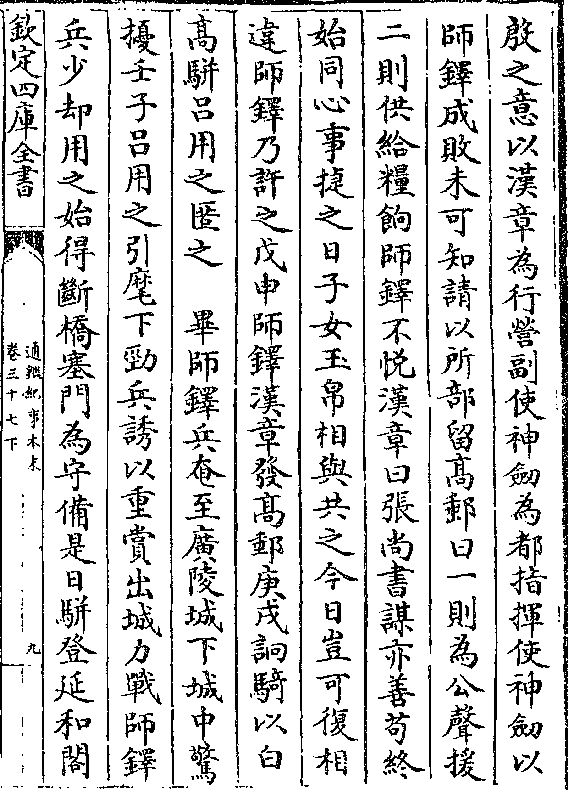 殷之意以漢章為行營副使神劒為都指揮使神劒以
師鐸成敗未可知請以所部留髙郵曰一則為公聲援
二則供給糧餉師鐸不悦漢章曰張尚書謀亦善茍終
始同心事捷之日子女玉帛相與共之今日豈可復相
違師鐸乃許之戊申師鐸漢章發髙郵庚戌詗騎以白
髙駢吕用之匿之　畢師鐸兵奄至廣陵城下城中驚
擾壬子吕用之引麾下勁兵誘以重賞出城力戰師鐸
兵少却用之始得斷橋塞門為守備是日駢登延和閣
欽定四庫全書
通鑑紀事本末
卷三十七下
九